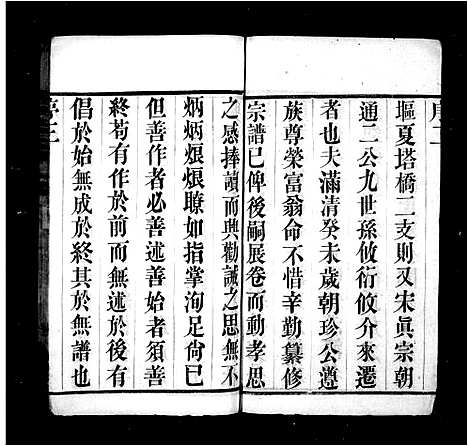 序二
塸夏塔橋二支則又宋眞宗朝
通二公九世孫攸衍攸介來遷
者也夫滿清癸未歲朝珍公遵
族尊榮富翁命不惜辛勤纂修
宗譜已俾後嗣展卷而動孝思
之感捧讀而興勸誡之思無不
炳炳烺烺瞭如指掌洵足尙已
但善作者必善述善始者須善
終苟有作於前而無述於後有
倡於始無成於終其於無譜也
序三